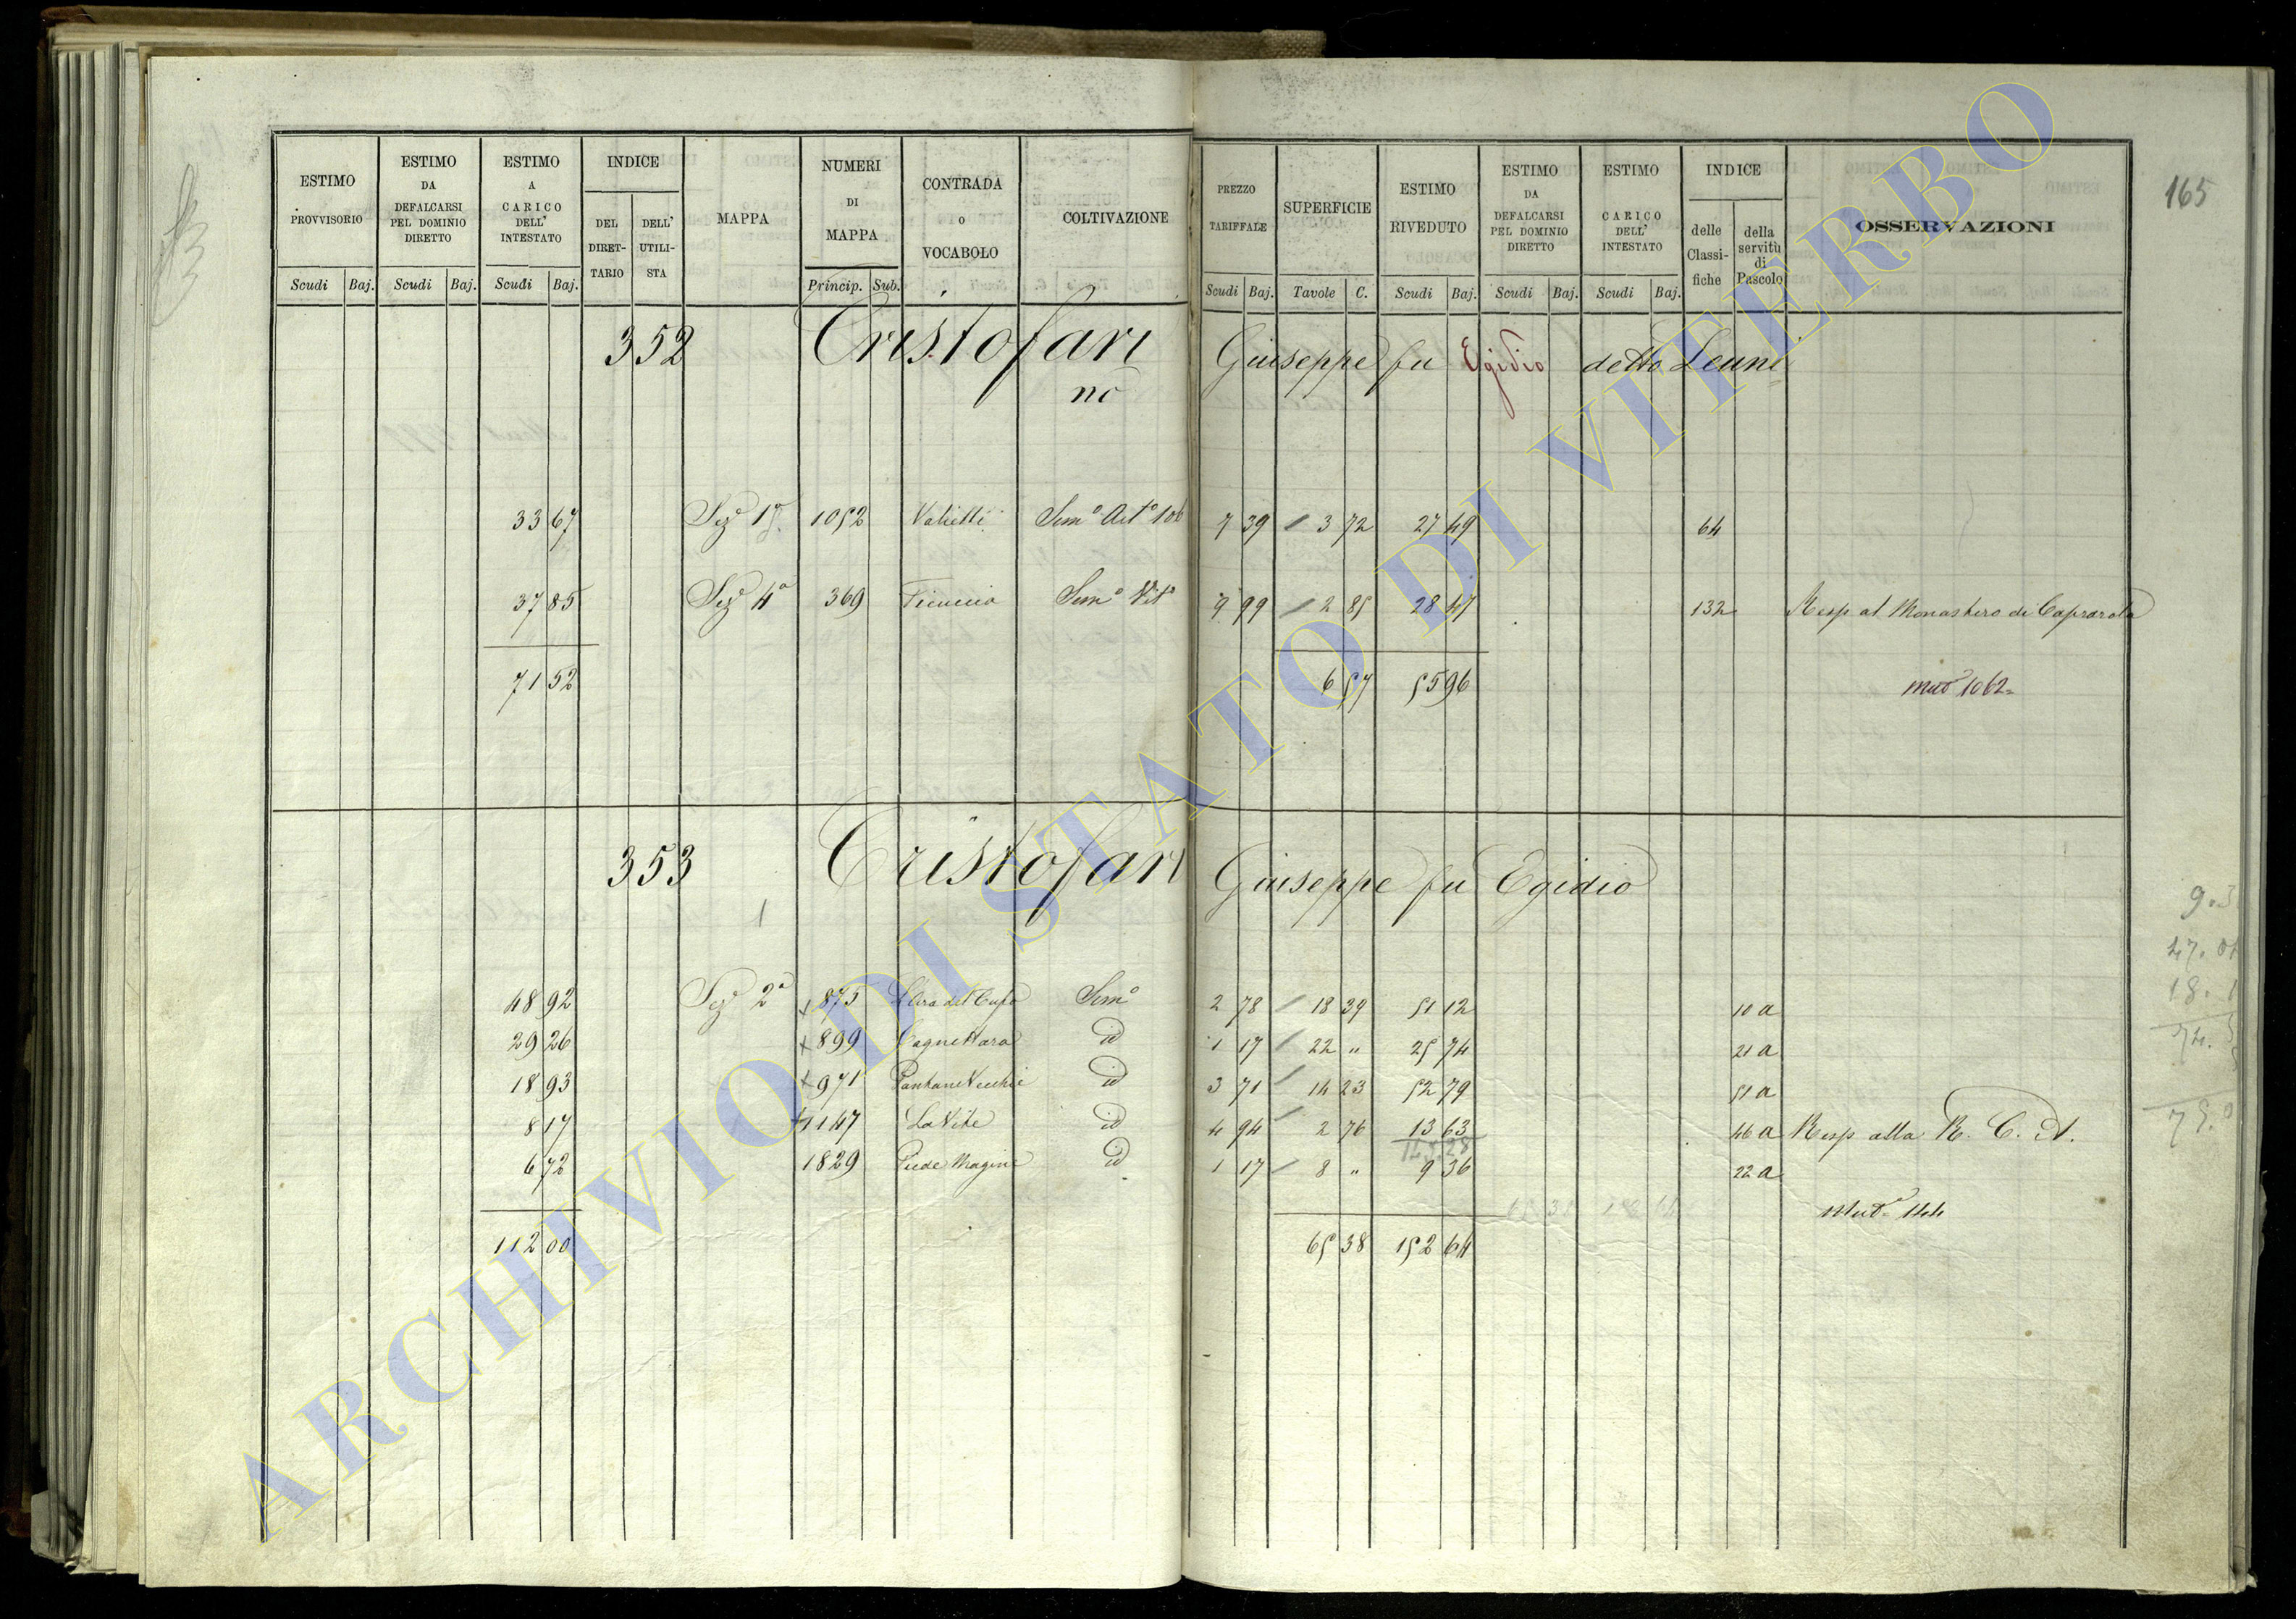 165
ESTIMO PROVVISORIO Scudi Baj.
ESTIMO DA DEFALCARSI PEL DOMINIO DIRETTO Scudi Baj.
ESTIMO A CARICO DELL' INTESTATO Scudi Baj.
INDICE DEL DIRET-TARIO DELL' UTILI-STA
MAPPA
NUMERI DI MAPPA Princip. Sub.
CONTRADA O VOCABOLO
COLTIVAZIONE
PREZZO TARIFFALE Scudi Baj.
SUPERFICIE Tavole C.
ESTIMO RIVEDUTO Scudi Baj.
ESTIMO DA DEFALCARSI PEL DOMINIO DIRETTO Scudi Baj.
ESTIMO CARICO DELL' INTESTATO Scudi Baj.
INDICE delle Classi-fiche della servitù di Pascolo
OSSERVAZIONI
352 Cristofari Giuseppe fu Egidio detto Leuni
no
33 67 Sez.e 1a 1052 Valietti Sem.o Art.o 7 39 3 72 27 49 64
37 85 Sez.e 4a 369 Ficuccia Sem.o Vit.o 9 99 2 85 28 47 132 Resp al Monastero di Caprarola
71 52 6 57 55 96 mut.o 1062
353 Cristofari Giuseppe fu Egidio
1
48 92 Sez.e 2a + 875 L'Ara del Cupo Sem.o 2 78 18 39 51 12 10 a
29 26 + 899 Cagnettara id 1 17 22 " 25 74 21 a
18 93 + 971 Pantane Vecchie id 3 71 14 23 52 79 51 a
8 17 + 1147 La Vite id 4 94 2 76 13 63 46 a Resp alla R. C. A.
143.28
6 72 1829 Piede Magine id 1 17 8 " 9 36 22 a
112 00 65 38 152 64 Mut.e 144